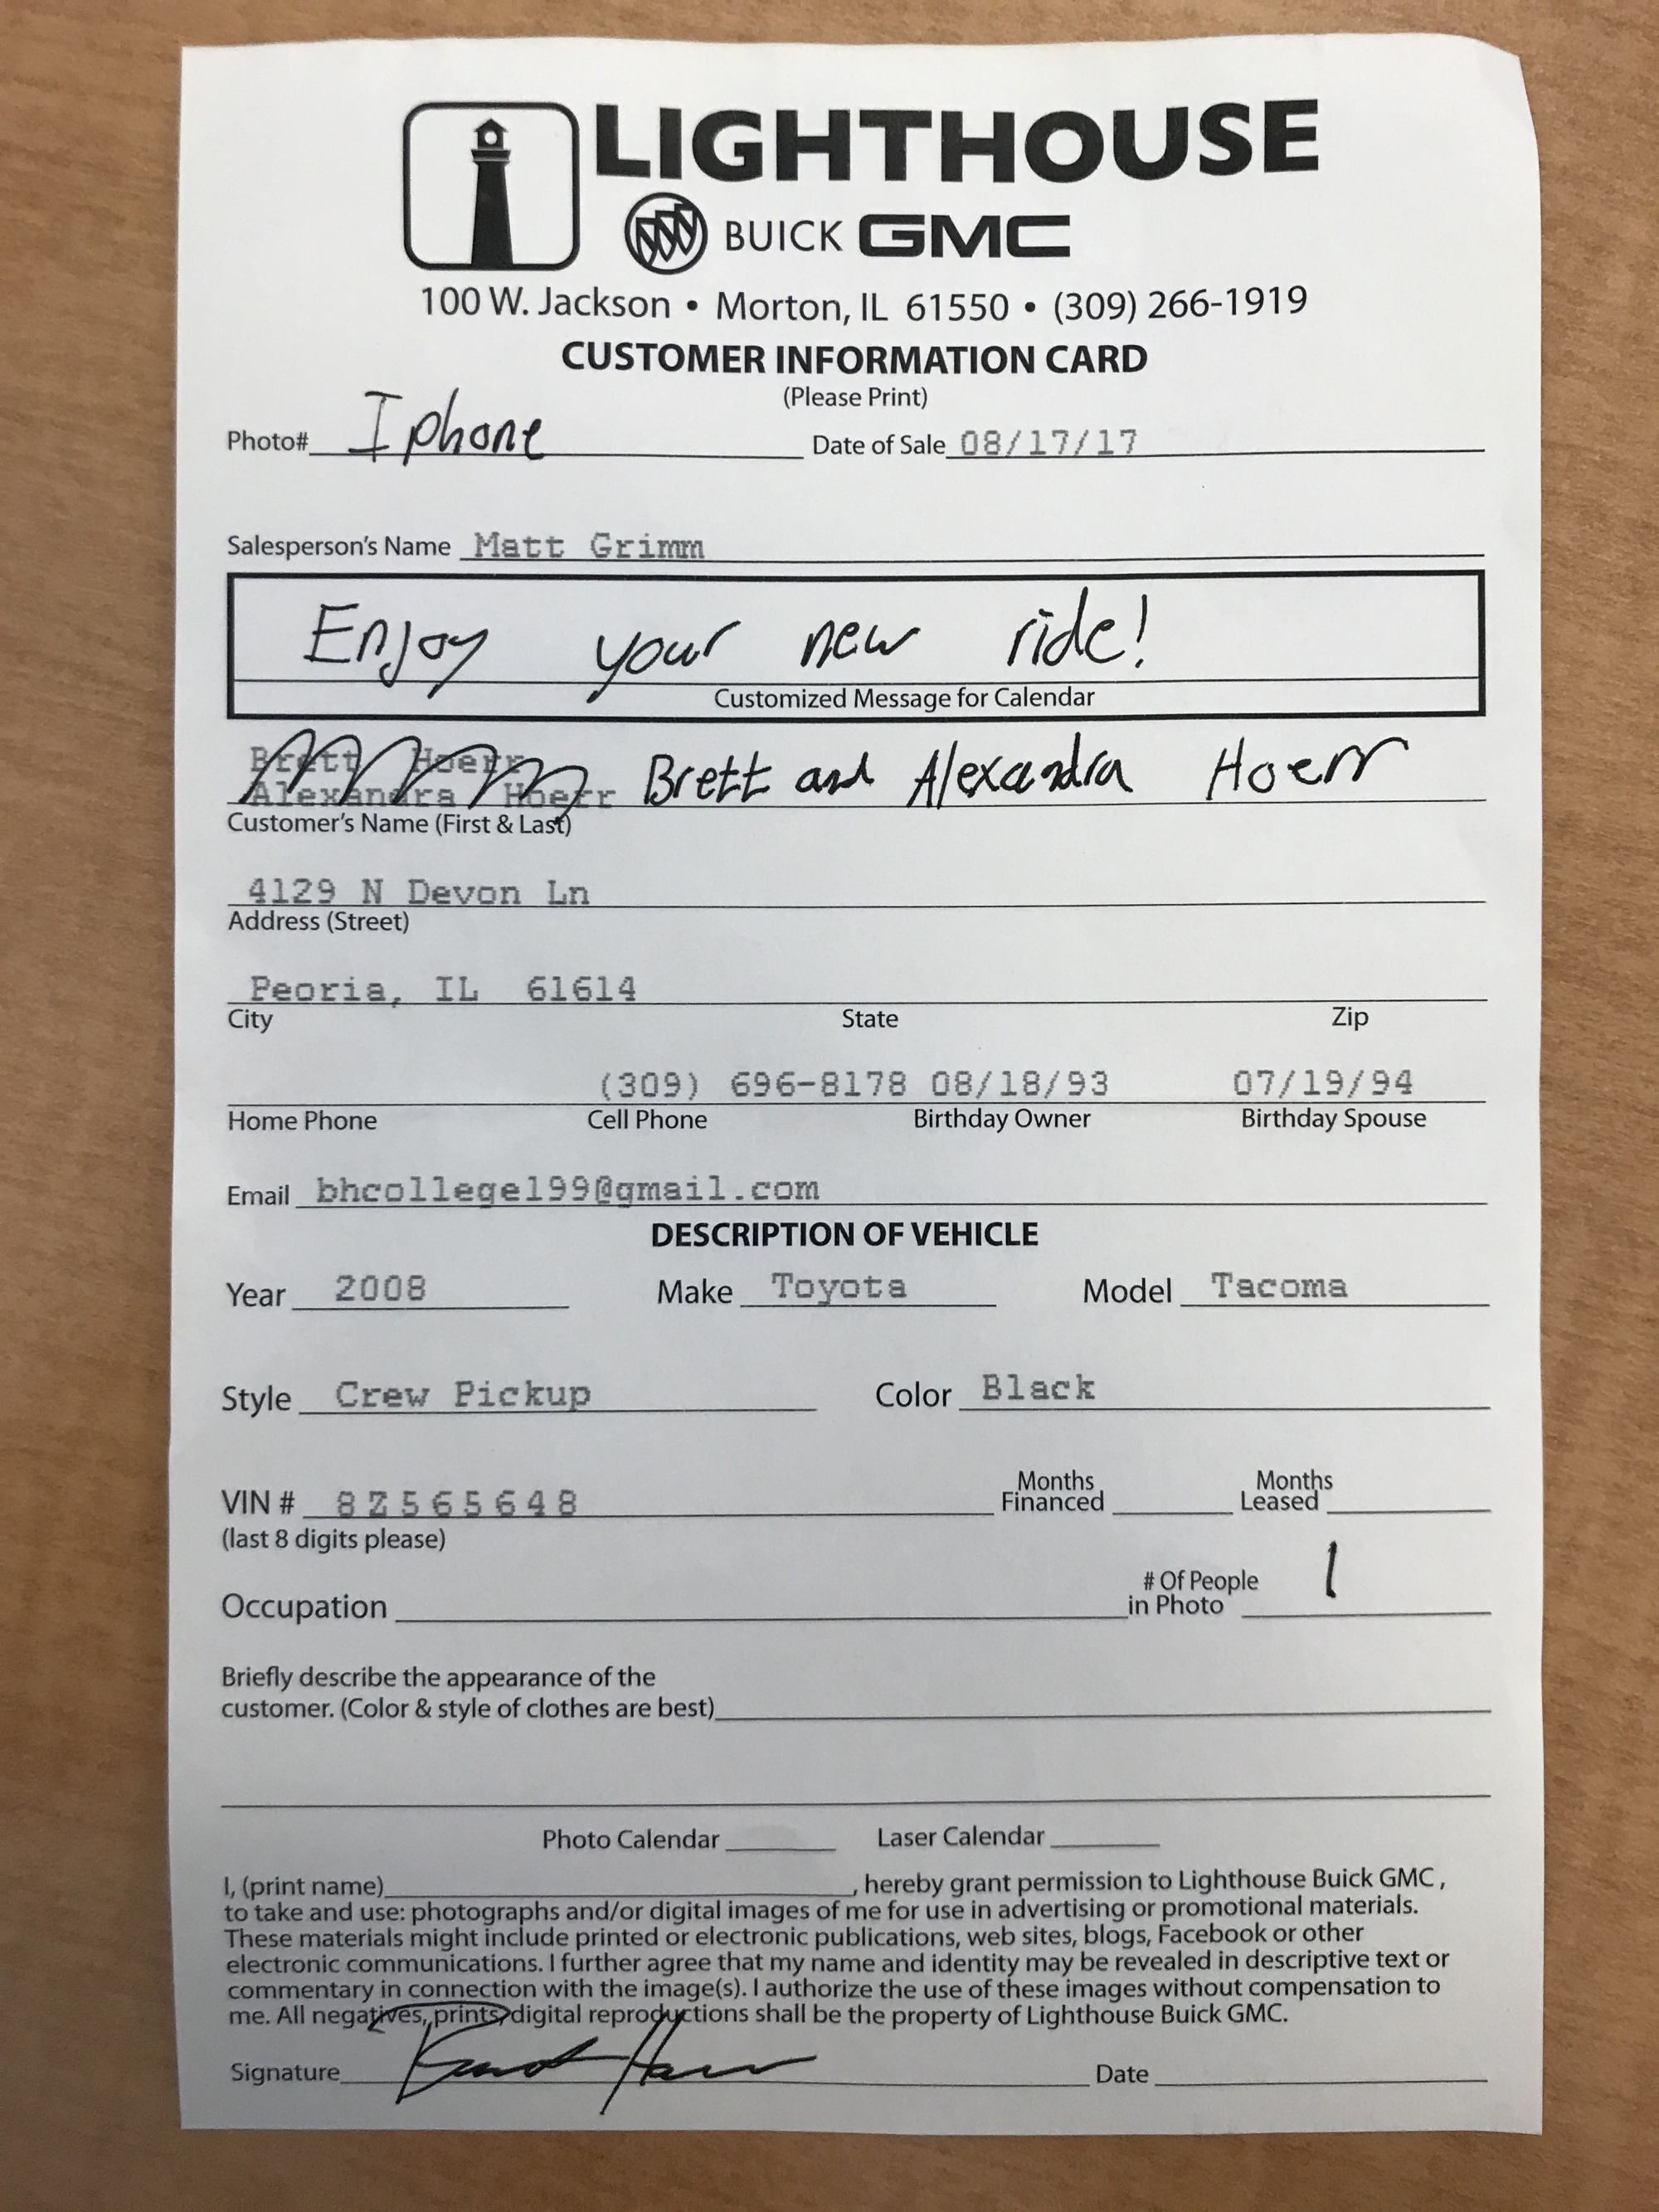 LIGHTHOUSE
BUICK GMC
100 W. Jackson • Morton, IL 61550 • (309) 266-1919
CUSTOMER INFORMATION CARD
(Please Print)
Photo# Iphone Date of Sale 08/17/17
Salesperson's Name Matt Grimm
Enjoy your new ride!
Customized Message for Calendar
Brett Hoerr
Alexandra Hoerr Brett and Alexandra Hoerr
Customer's Name (First & Last)
4129 N Devon Ln
Address (Street)
Peoria, IL 61614
City State Zip
(309) 696-8178 08/18/93 07/19/94
Home Phone Cell Phone Birthday Owner Birthday Spouse
Email bhcollege199@gmail.com
DESCRIPTION OF VEHICLE
Year 2008 Make Toyota Model Tacoma
Style Crew Pickup Color Black
Months Months
VIN # 8Z565648 Financed Leased
(last 8 digits please)
# Of People 1
Occupation in Photo
Briefly describe the appearance of the
customer. (Color & style of clothes are best)
Photo Calendar Laser Calendar
I, (print name) , hereby grant permission to Lighthouse Buick GMC ,
to take and use: photographs and/or digital images of me for use in advertising or promotional materials.
These materials might include printed or electronic publications, web sites, blogs, Facebook or other
electronic communications. I further agree that my name and identity may be revealed in descriptive text or
commentary in connection with the image(s). I authorize the use of these images without compensation to
me. All negatives, prints, digital reproductions shall be the property of Lighthouse Buick GMC.
Signature Date